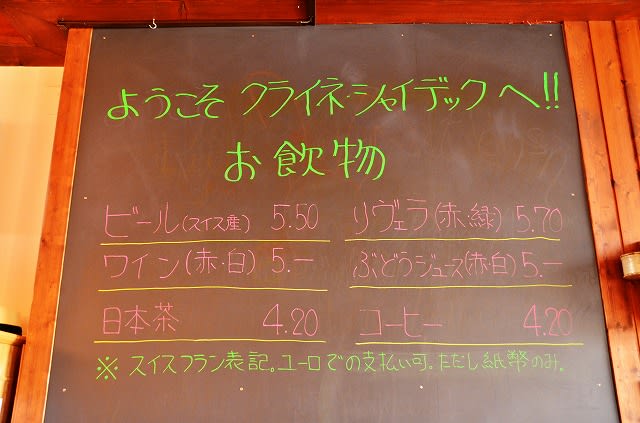 ようこそ クライネ・シャイデックへ!!
お飲物
ビール(スイス産) 5.50 リヴェラ(赤・緑) 5.70
ワイン(赤・白) 5.— ぶどうジュース(赤・白) 5.—
日本茶 4.20 コーヒー 4.20
※ スイスフラン表記。ユーロでの支払い可。ただし紙幣のみ。